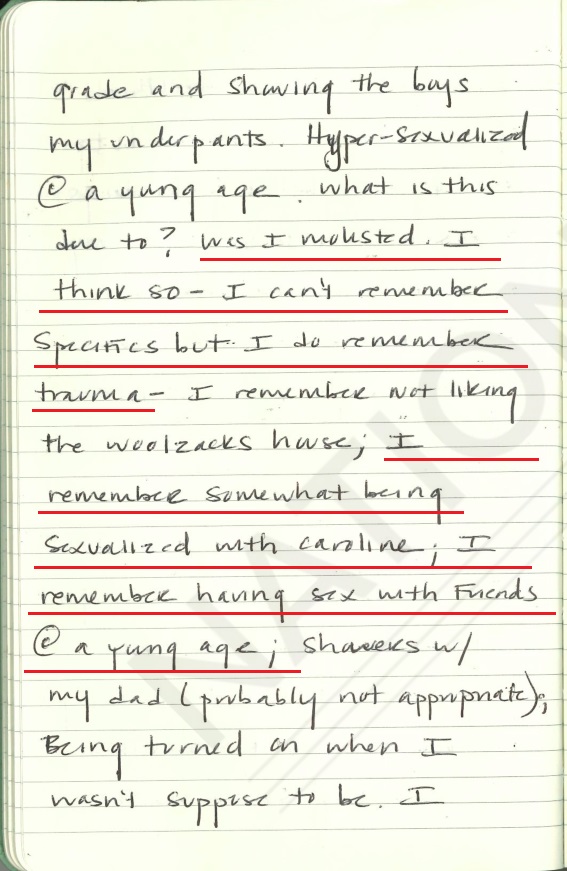 grade and showing the boys
my underpants. Hyper-sexualized
@ a yung age. what is this
due to? Was I molested. I
think so - I can't remember
specifics but I do remember
trauma - I remember not liking
the woolzacks house; I
remember somewhat being
sexualized with caroline; I
remember having sex with friends
@ a yung age; showers w/
my dad (probably not appropriate);
Being turned on when I
wasn't suppose to be. I
NATION